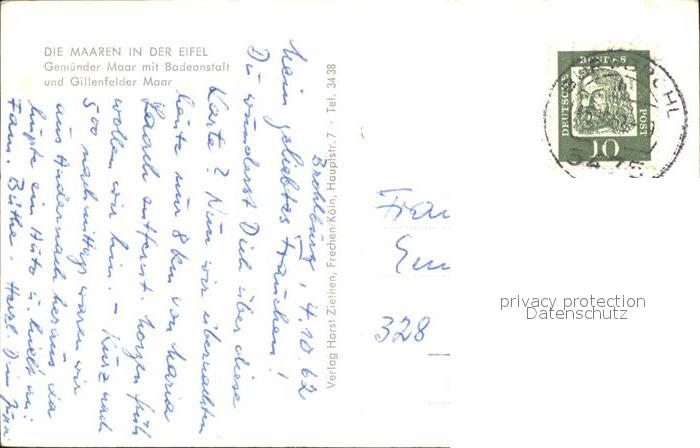 DIE MAAREN IN DER EIFEL
Gemünder Maar mit Badeanstalt
und Gillenfelder Maar
Brohlburg, 4.10.62
Mein geliebtes Frauchen!
Du wunderst Dich über diese
Karte? Nun wir übernachten
heute nur 8 km von Maria
Laach entfernt. Morgen früh
wollen wir hin. – Kurz nach
500 nachmittags waren wir
aus Andernach heraus da
hupte ein Auto u. hielt
Fam. Herzl. Dein
Verlag Horst Ziethen, Frechen/Köln, Hauptstr. 7 · Tel. 3438
DEUTSCHE
BUNDES
POST
10
BROHL
Frau
328
privacy protection
Datenschutz